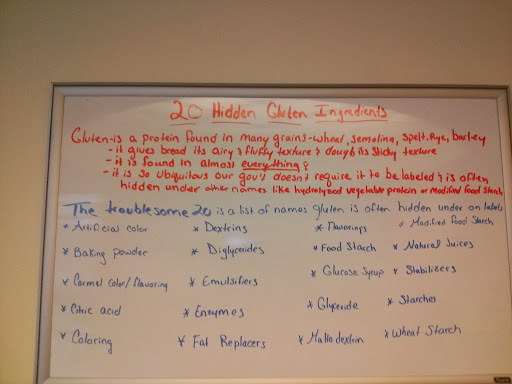 20 Hidden Gluten Ingredients
Gluten-is a protein found in many grains-wheel, semolina, Spelt, Rye, barley
- it gives bread its airy & fluffy texture & dough its sticky texture
- it is found in almost everything!
- it is so ubiquitous our gov't doesn't require it to be labeled & is often
hidden under other names like hydrolyzed vegetable protein or Modified Food Starch
The troublesome 20 is a list of names gluten is often hidden under on labels
* Artificial color
* Baking powder
* Carmel color/flavoring
* Citric acid
* Coloring
* Dextrins
* Diglycerides
* Emulsifiers
* Enzymes
* Fat Replacers
* Flavorings
* Food Starch
* Glucose Syrup
* Glyceride
* Maltodextrin
* Modified Food Starch
* Natural Juices
* Stabilizers
* Starches
* Wheat Starch